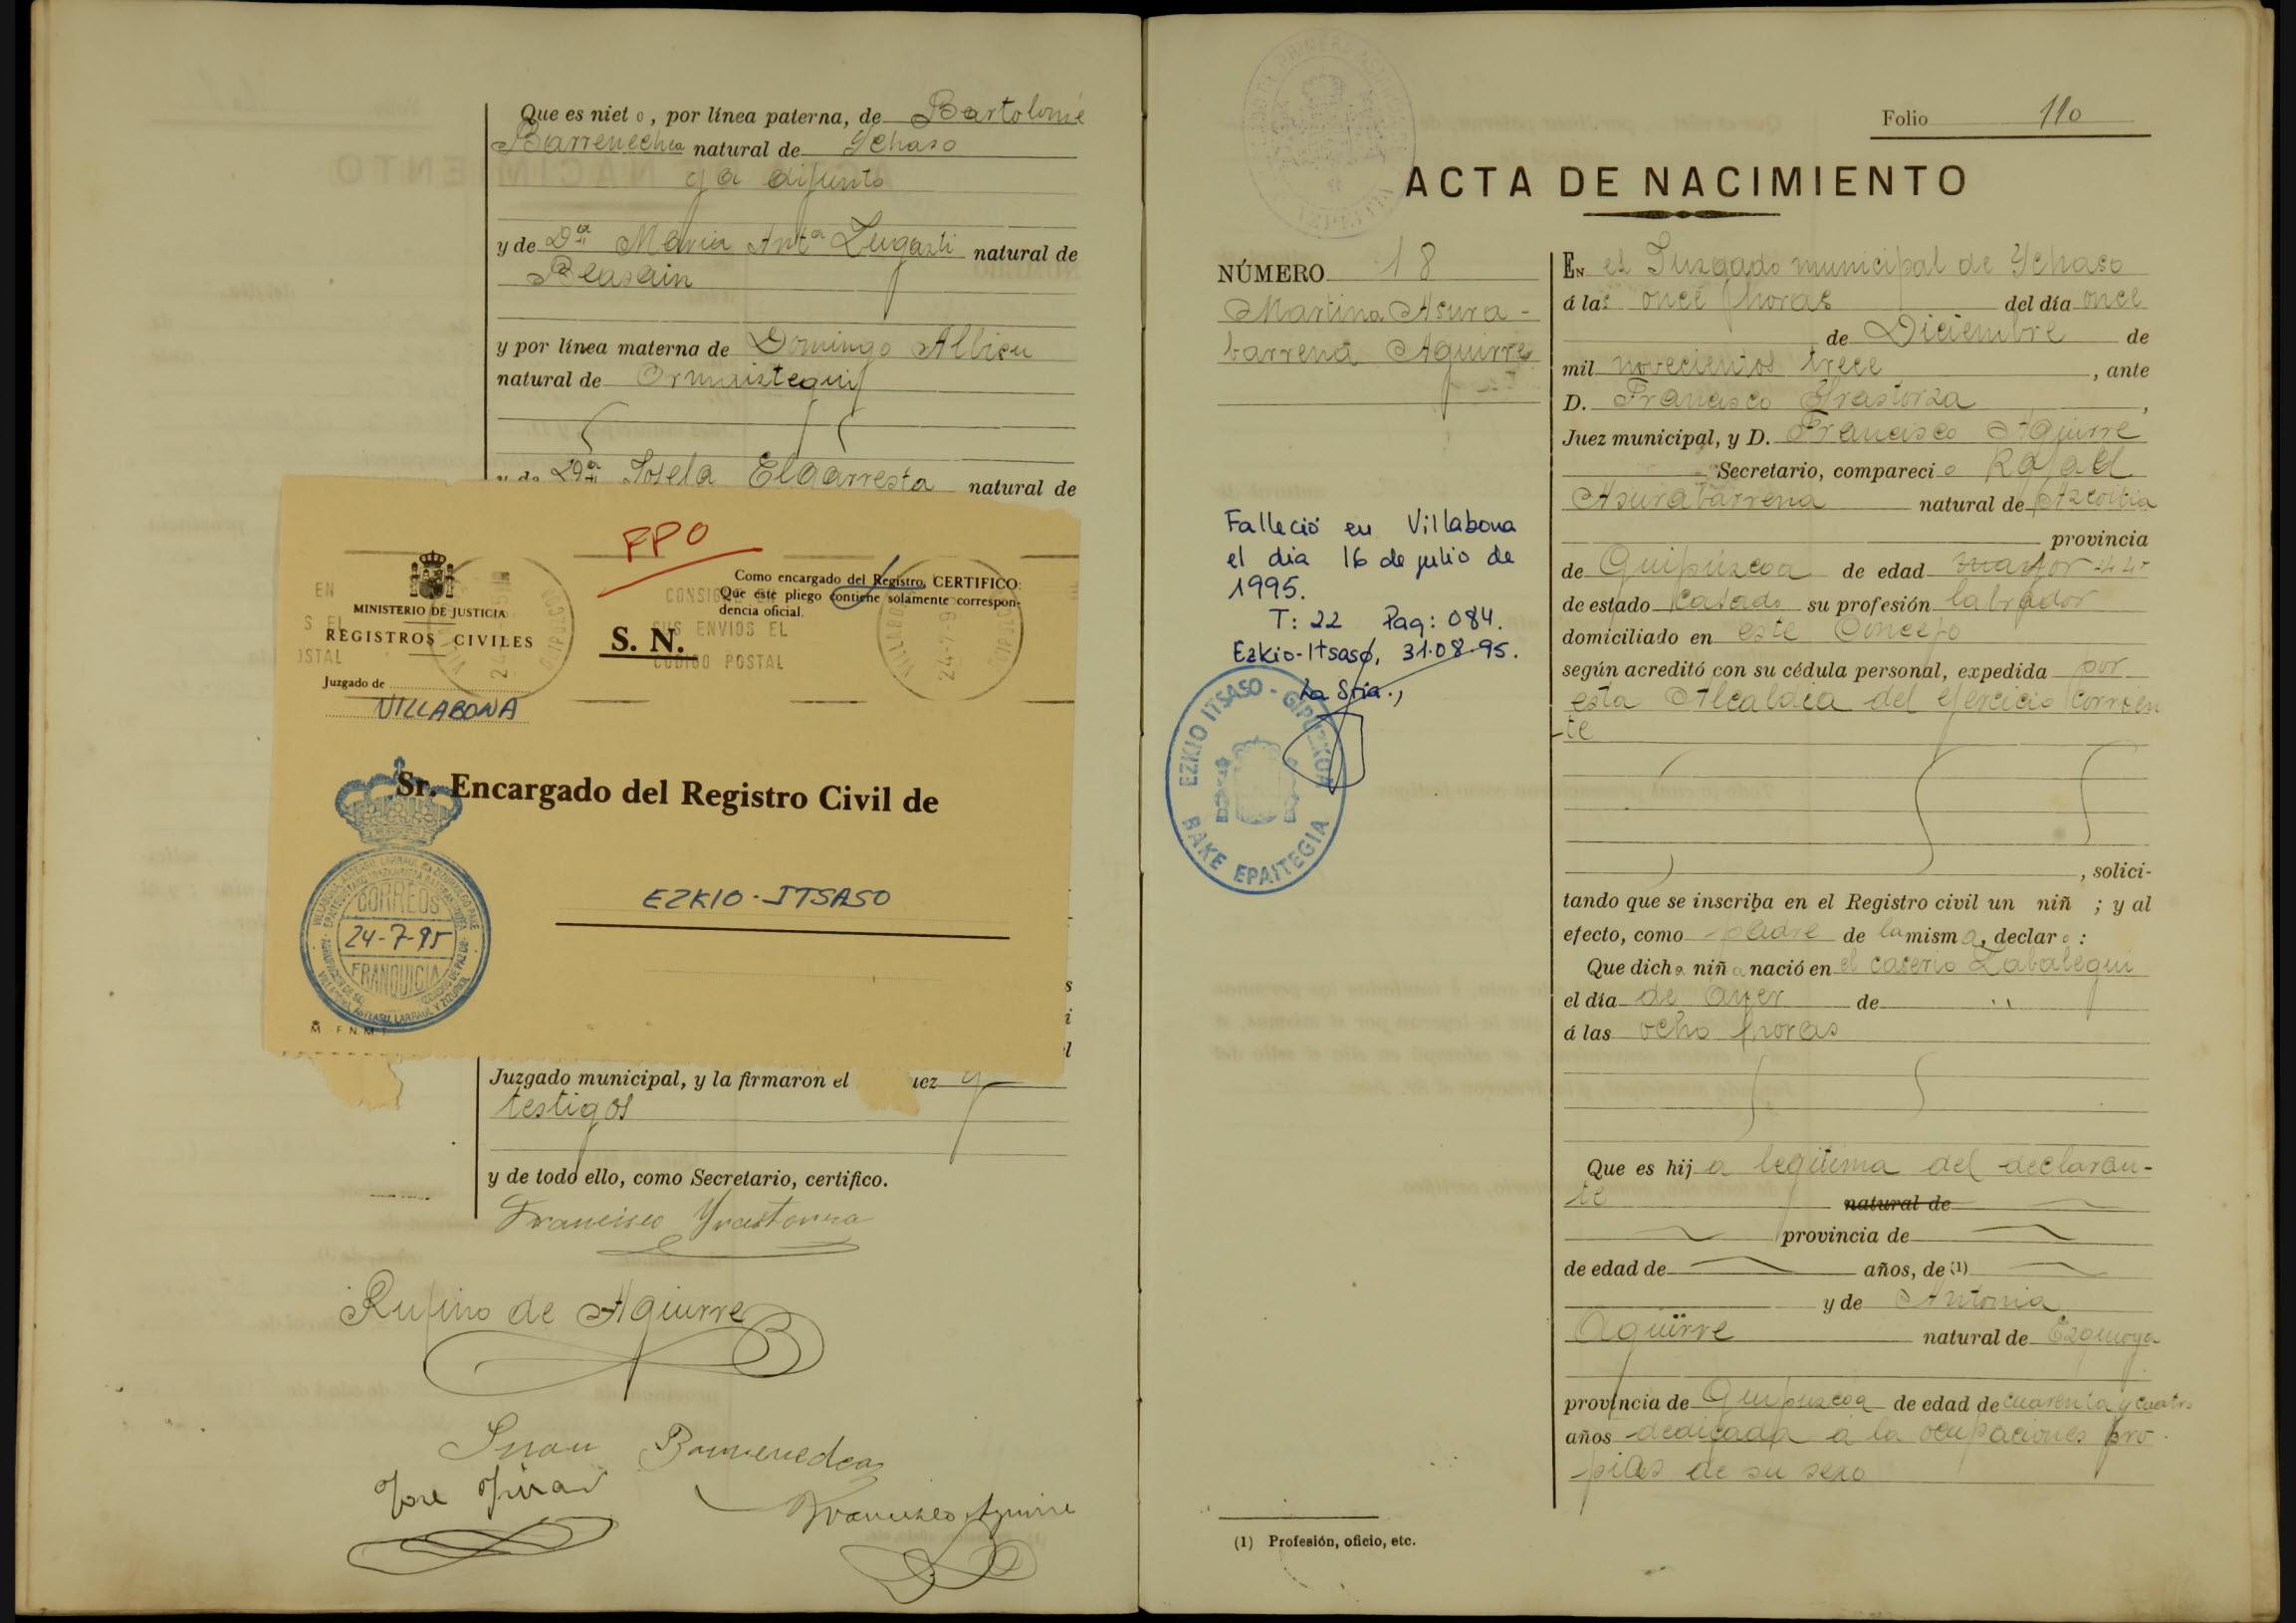 Que es niet o, por línea paterna, de Bartolomé
Barrenechea natural de Ychaso
ya difunto
y de Dª Maria Antª Zugasti natural de
Beasain
y por línea materna de Domingo Albisu
natural de Ormaiztegui
y de Dª Josefa Elgarresta natural de
PPO
MINISTERIO DE JUSTICIA
REGISTROS CIVILES
Juzgado de
VILLABONA
S. N.
Como encargado del Registro, CERTIFICO:
Que este pliego contiene solamente correspon-
dencia oficial.
CONSIGNE EN
SUS ENVIOS EL
CODIGO POSTAL
Sr. Encargado del Registro Civil de
EZKIO-ITSASO
CORREOS
24-7-95
FRANQUICIA
F.N.M.T.
Juzgado municipal, y la firmaron el uez y
testigos
y de todo ello, como Secretario, certifico.
Francisco Yrastorza
Rufino de Aguirre
Juan Barrenechea
José
Francisco Aguirre
Folio 110
ACTA DE NACIMIENTO
NÚMERO 18
Martina Asura-
barrena Aguirre
Falleció en Villabona
el dia 16 de julio de
1995.
T: 22 Pag: 084.
Ezkio-Itsaso, 31.08.95.
La Sria.,
EZKIO ITSASO - GIPUZKOA
BAKE EPAITEGIA
EN el Juzgado municipal de Ychaso
á las once horas del día once
de Diciembre de
mil novecientos trece, ante
D. Francisco Yrastorza,
Juez municipal, y D. Francisco Aguirre
Secretario, compareci o Rafael
Asurabarrena natural de Azcoitia
provincia
de Guipúzcoa de edad mayor 44
de estado casado su profesión labrador
domiciliado en este Concejo
según acreditó con su cédula personal, expedida por
esta Alcaldia del ejercicio corrien
-te
, solici-
tando que se inscriba en el Registro civil un niñ ; y al
efecto, como padre de la mism a, declar o:
Que dich a niñ a nació en el caserio Zabalegui
el día de ayer de "
á las ocho horas
Que es hij a legitima del declaran-
te natural de
provincia de
de edad de años, de (1)
y de Antonia
Aguirre natural de Ezquioga
provincia de Guipuzcoa de edad de cuarenta y cuatro
años dedicada a la ocupaciones pro
pias de su sexo
(1) Profesión, oficio, etc.